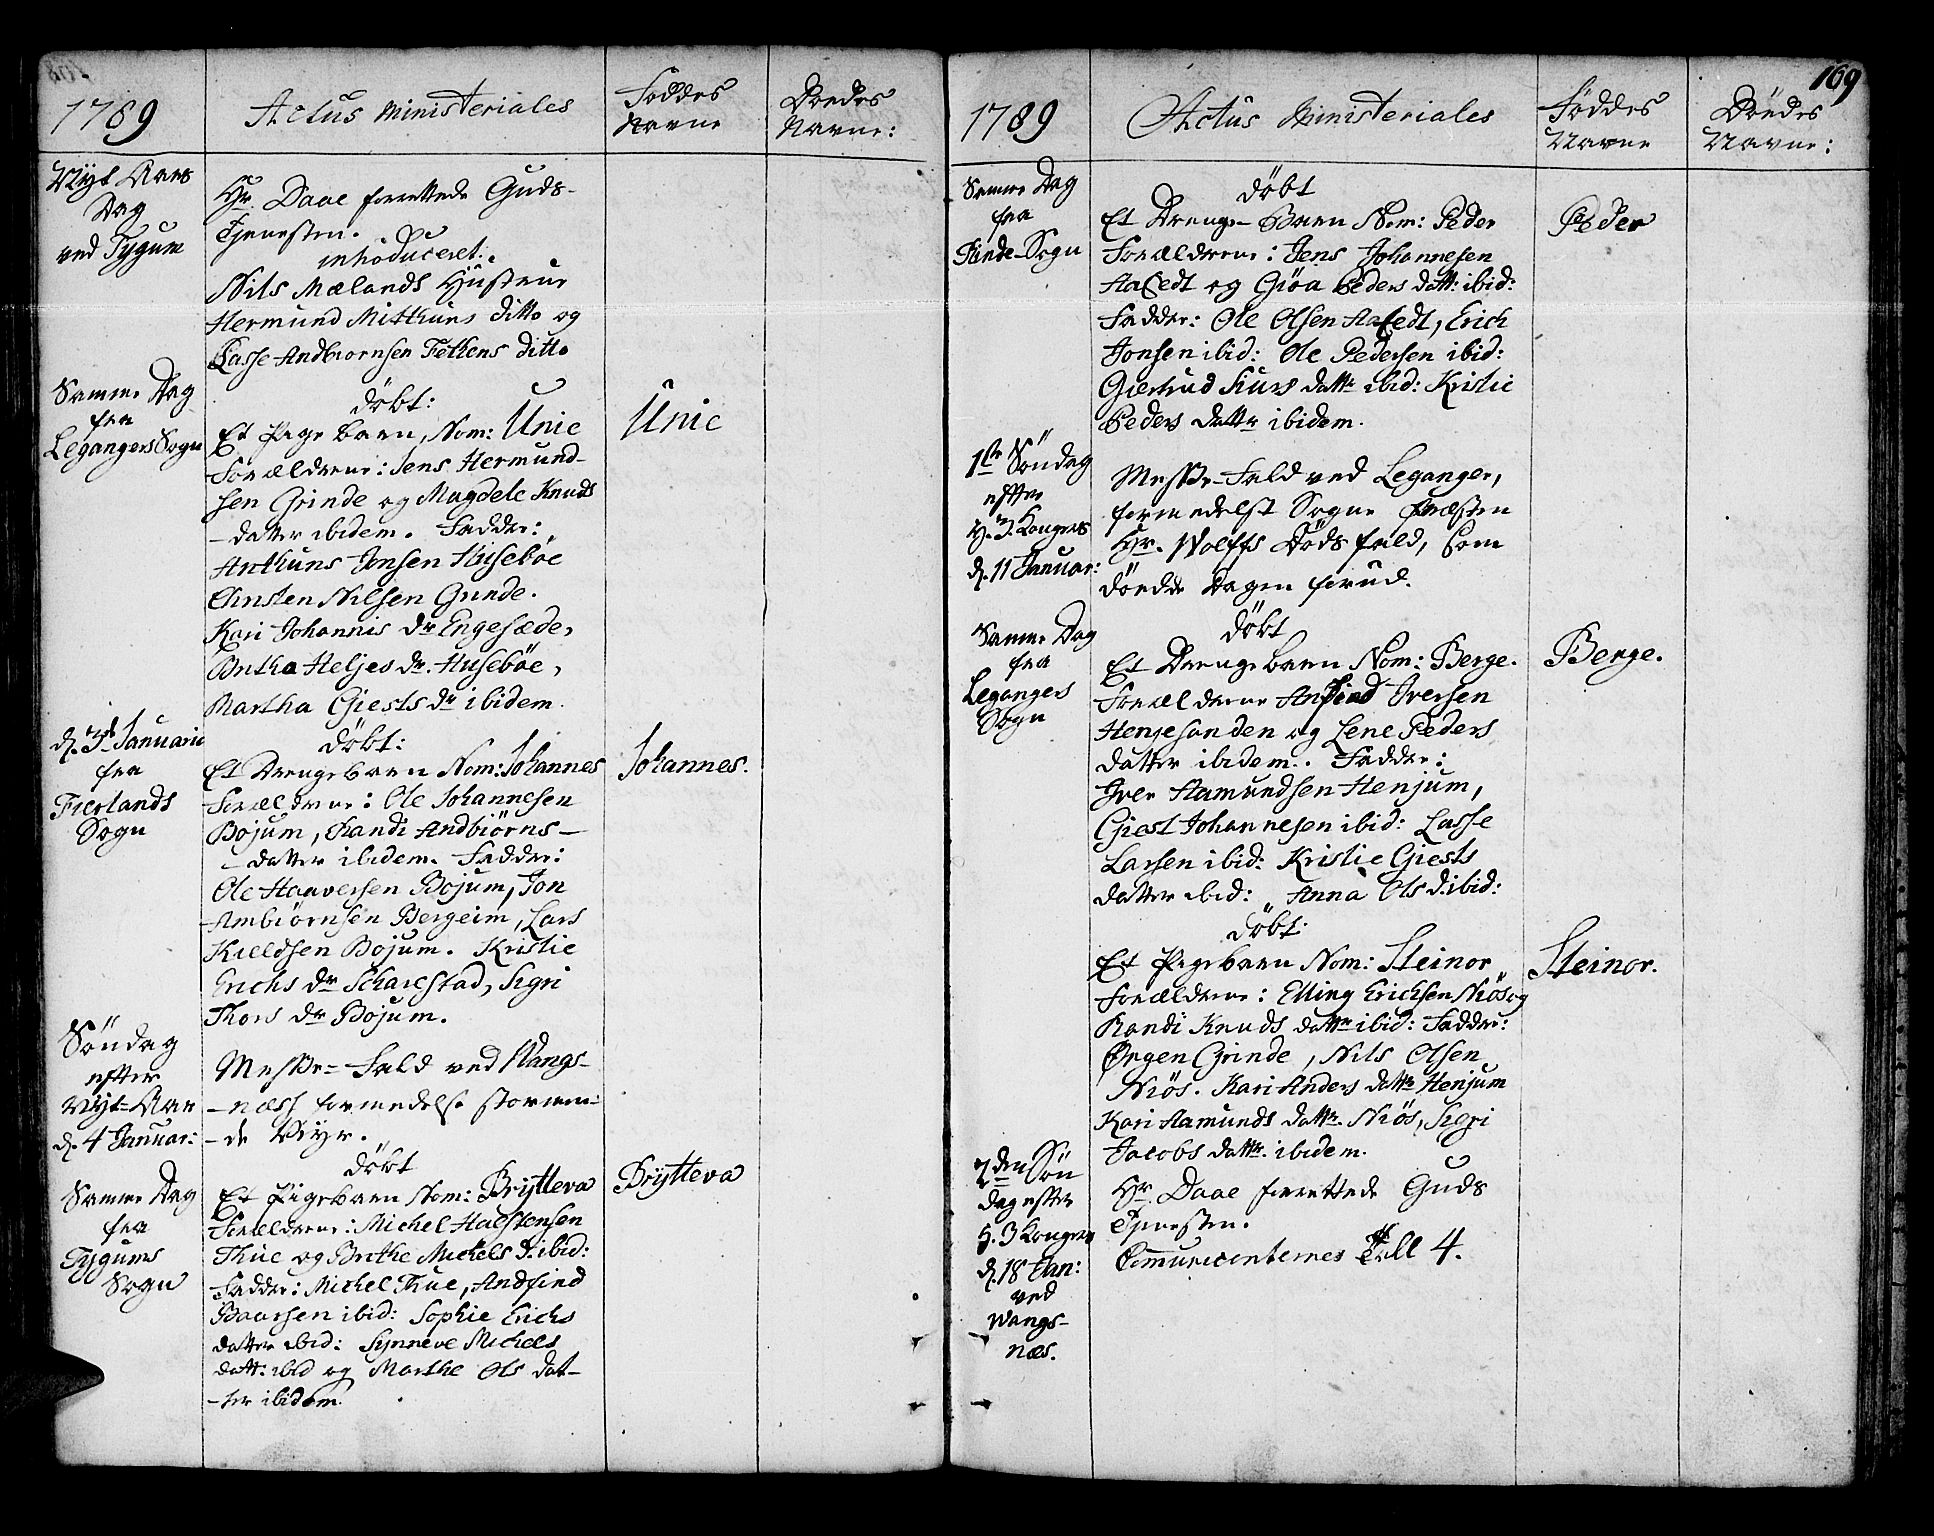 1789
Actus Ministeriales
Føddes
Navne
Døedes
Navne:
Nyt Aars
Dag
ved Tygum
Hr. Daae forrettede Guds-
Tjenesten.
introduceret:
Nils Mælands Hustrue
Hermund Mithuns ditto og
Lasse Andbiornsen Tethens ditto
Samme Dag
fra
Legangers Sogn
døbt:
Et Pige barn, Nom: Unie
Unie
Forældrene: Jens Hermund-
sen Grinde og Magdele Knuds
-datter ibidem. Fadder:
Anthuns Jonsen Husebøe
Christen Nilsen Grinde.
Kari Johannis dr Engesæde,
Britha Heljes dr. Husebøe,
Martha Giests dr ibidem.
d. 3d Januarii
fra
Fierlands
Sogn
døbt:
Et Drengebarn Nom: Johannes
Johannes.
Forældrene: Ole Johannesen
Bojum, Randi Andbiørns-
-datter ibidem. Fadder:
Ole Haaversen Bojum, Jon
Ambiørnsen Bergeim, Lars
Kieldsen Bojum. Kristie
Erichs dr Scharestad, Sigri
Thors dr Bojum.
Søndag
efter
Nyt-Aar
d. 4 Januar:
Messe-Fald ved Wangs-
-næss formedelst stormen-
-de Veyr.
Samme Dag
fra
Tygums
Sogn
døbt
Et Pigebarn Nom: Brytteva
Brytteva
Forældrene: Michel Halstensen
Thue og Brithe Michels d: ibid:
Fadder: Michel Thue, Andfind
Baarsen ibid: Sophie Erichs
datter ibid: Synneve Michels
datt: ibid og Marthe Ols dat-
-ter ibidem.
169
1789
Actus Ministeriales
Føddes
Navne
Døedes
Navne:
Samme Dag
fra
Rinde-Sogn
døbt
Et Drenge-Barn Nom: Peder
Peder
Forældrene: Jens Johannesen
Aafedt og Giøa Peders datt: ibid:
Fadder: Ole Olsen Aafedt, Erich
Jonsen ibid: Ole Pedersen ibid:
Giertrud Siurs dattr ibid: Kristie
Peders dattr ibidem.
1ste Søndag
efter
H. 3. Konger
d. 11 Januar:
Messe-Fald ved Leganger,
formedelst Sogne Præsten
Hr. Wolffs Døds fald, som
døede Dagen forud.
Samme Dag
fra
Legangers
Sogn
døbt
Et Drengebarn Nom: Berge.
Berge.
Forældrene Anfind Iversen
Henjesanden og Lene Peders
datter ibidem. Fadder:
Iver Aamundsen Henjum,
Giest Johannesen ibid: Lasse
Larsen ibid: Kristie Giests
datter ibid: Anna Ols d: ibid:
døbt:
Et Pigebarn Nom: Steinor
Steinor.
Forældrene: Elling Erichsen Niøs og
Randi Knuds dattr ibid: Fadder:
Ørgen Grinde, Nils Olsen
Niøs. Kari Anders dattr Henjum
Kari Aamunds dattr. Niøs, Sigri
Jacobs dattr. ibidem.
2den Søn
dag efter
H. 3 Konger
d. 18 Jan:
ved
Wangs-
næs.
Hr. Daae forrettede Guds
Tjenesten.
Communicenternes Tall 4.